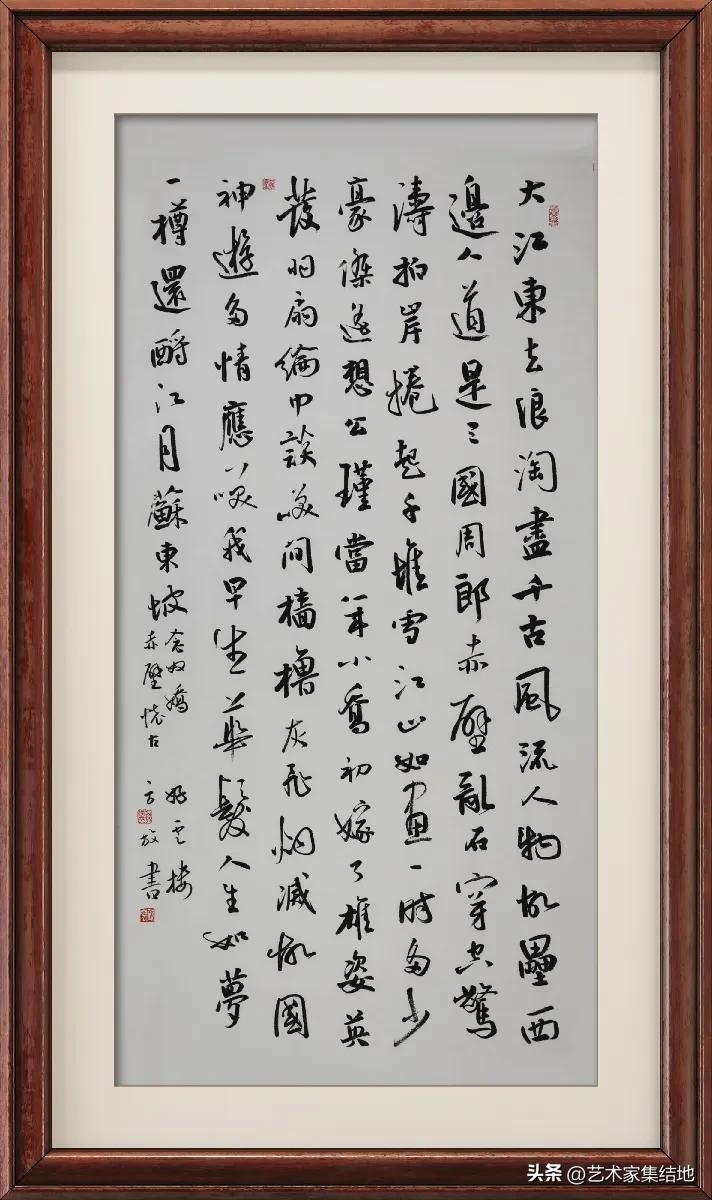 大江東去浪淘盡千古風流人物故壘西
邊人道是三國周郎赤壁亂石穿空驚
濤拍岸捲起千堆雪江山如畫一時多少
豪傑遙想公瑾當年小喬初嫁了雄姿英
發羽扇綸巾談笑間檣櫓灰飛烟滅故國
神遊多情應笑我早生華髮人生如夢
一樽還酹江月蘇東坡
念奴嬌
赤壁懷古
樓
書
头条 @艺术家集结地